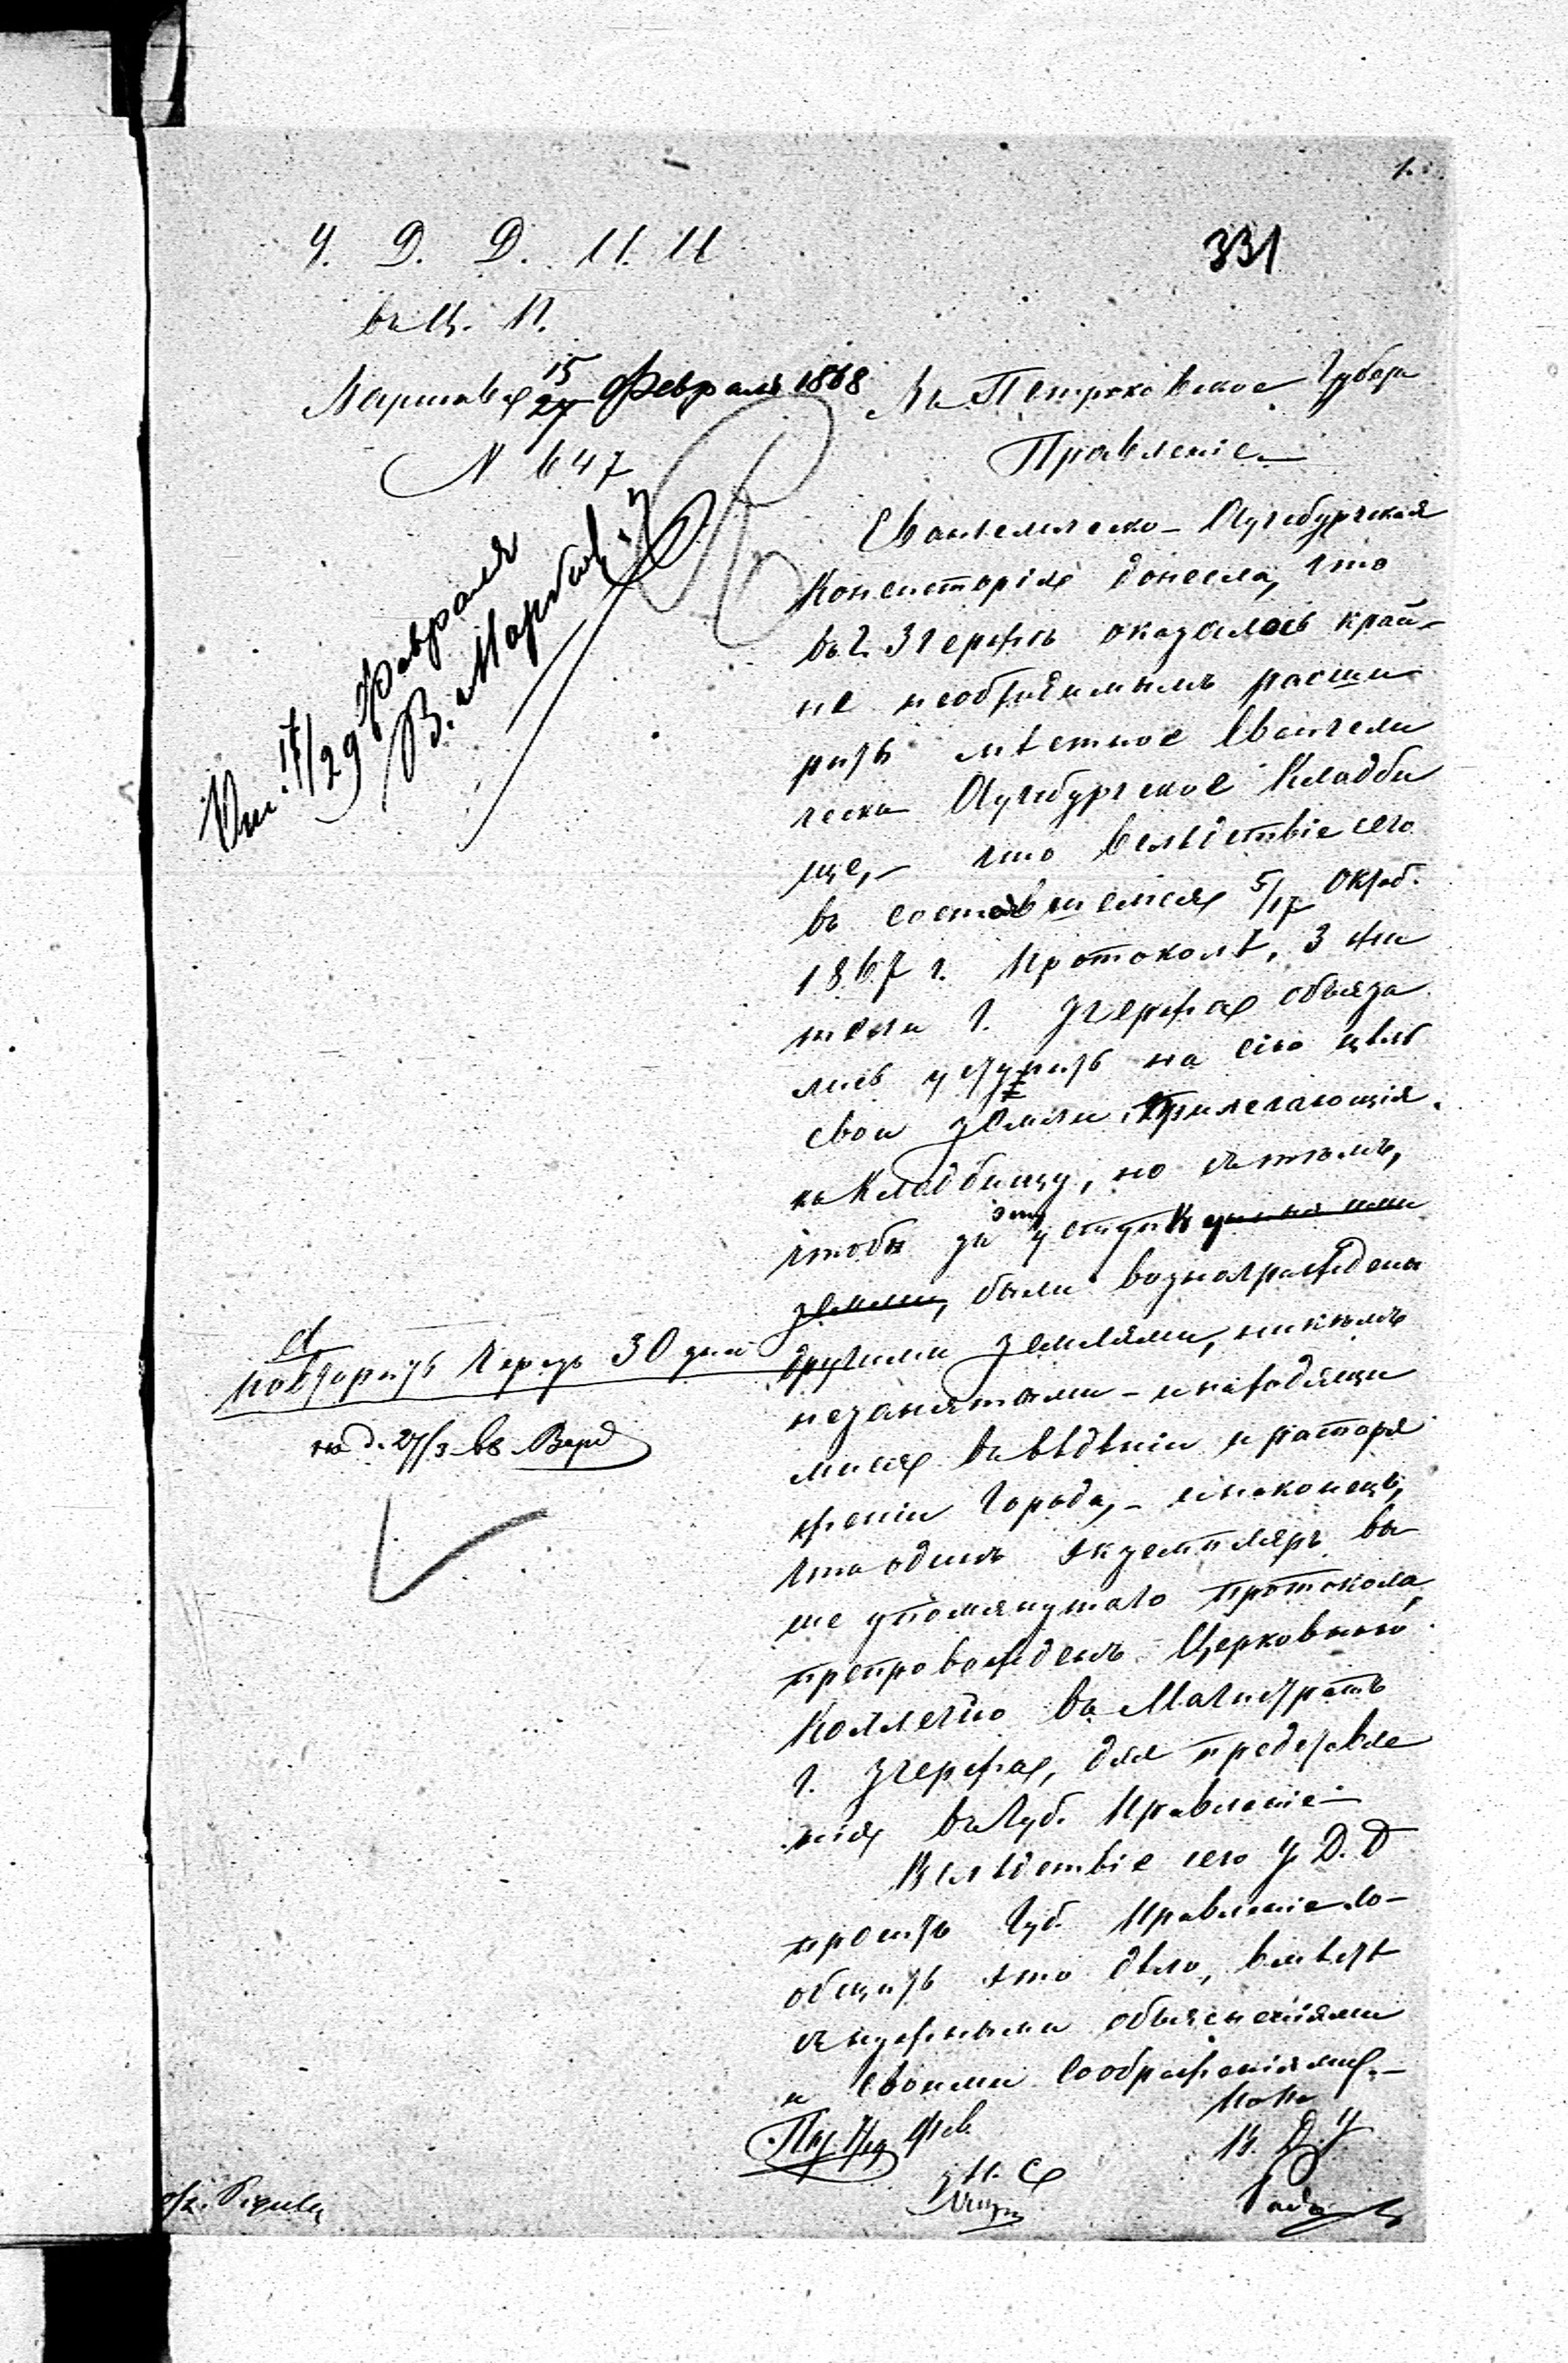 1.
У. Д. Д. И. И
331
въ Ц. П.
Варшава 15/27 Февраля 1868
N 647
Въ Петроковское Губерн
Правленіе
Евангелическо-Аугсбургская
Консисторія донесла, что
въ г. Згержѣ оказалось край-
не необходимымъ расши
рить мѣстное Евангели
ческо Аугсбургское Кладби
ще, – что вслѣдствіе сего
въ состоявшемся 5/17 Октяб.
1867 г. протоколѣ, 3 жи
теля г. Згержа обяза
лись уступить на сію цѣль
свои земли прилегающія
къ кладбищу, но съ тѣмъ,
чтобы за эту уступку
земли, были вознаграждены
другими землями, никѣмъ
незанятыми – и находящи
мися въ вѣдѣніи и распоря
женіи города, – и наконецъ,
что одинъ экземпляръ вы
ше упомянутаго протокола,
препровожденъ Церковною
Коллегіею въ Магистратъ
г. Згержа, для представле
нія въ Губ. Правленіе
Вслѣдствіе сего У. Д. Д
проситъ Губ. Правленіе со-
общить это дѣло, вмѣстѣ
съ нужными объясненіями
и своими соображеніями. –
17/29 Февраля
повторить чрезъ 30 дней
27/3 68
Н. С
В. Д. У